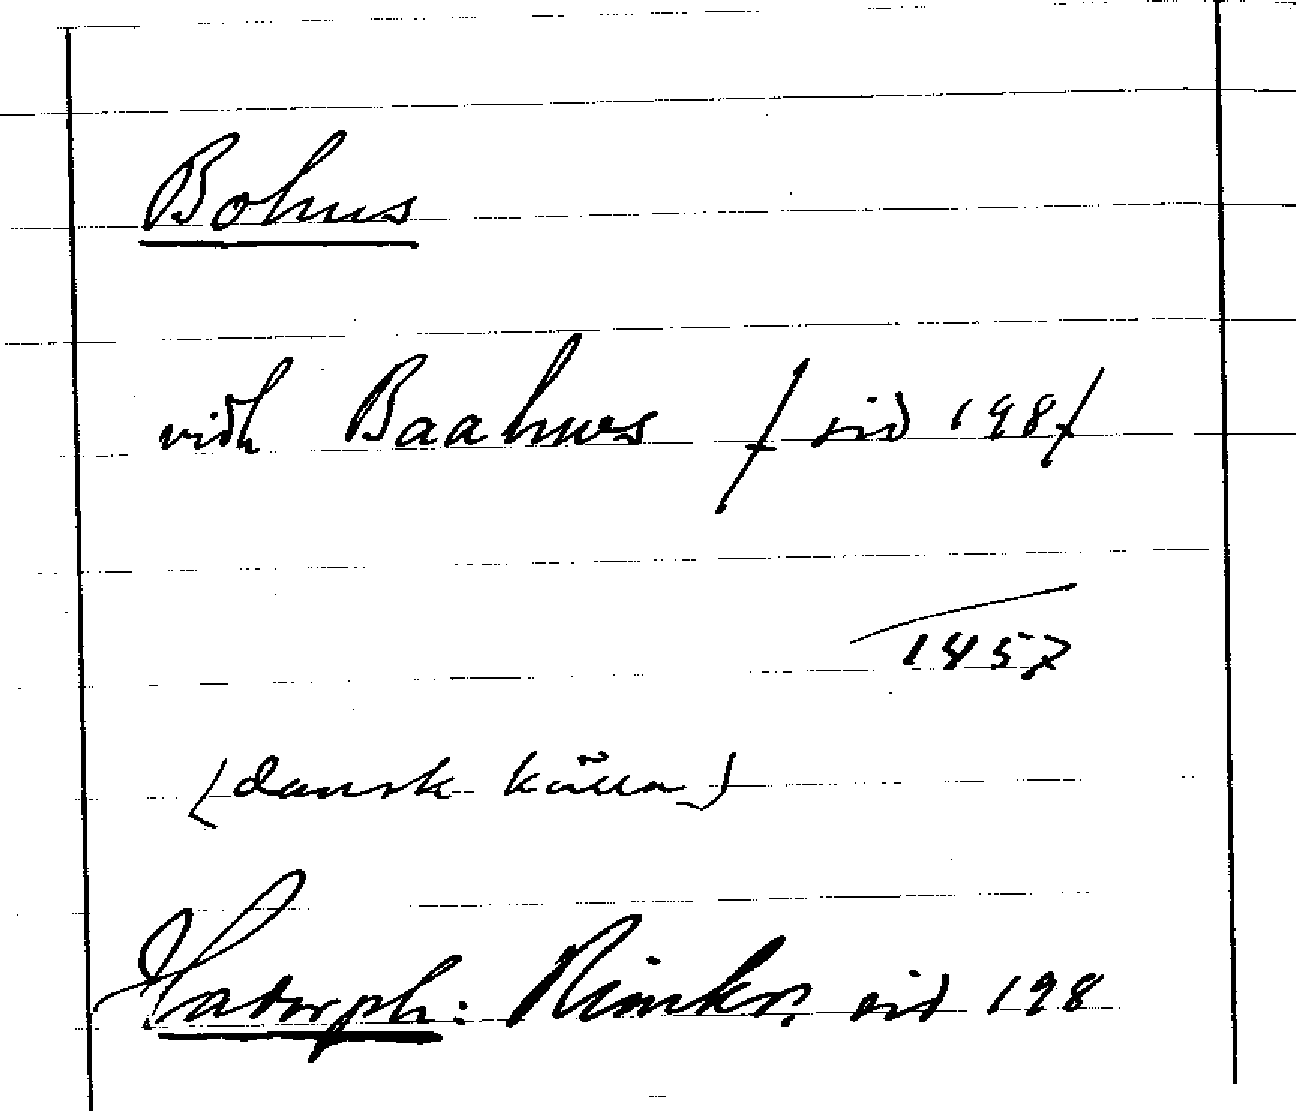 Bohus
vidh Baahws / sid 198/
1457
(dansk källa)
Hadorph: Rimkr. sid 198